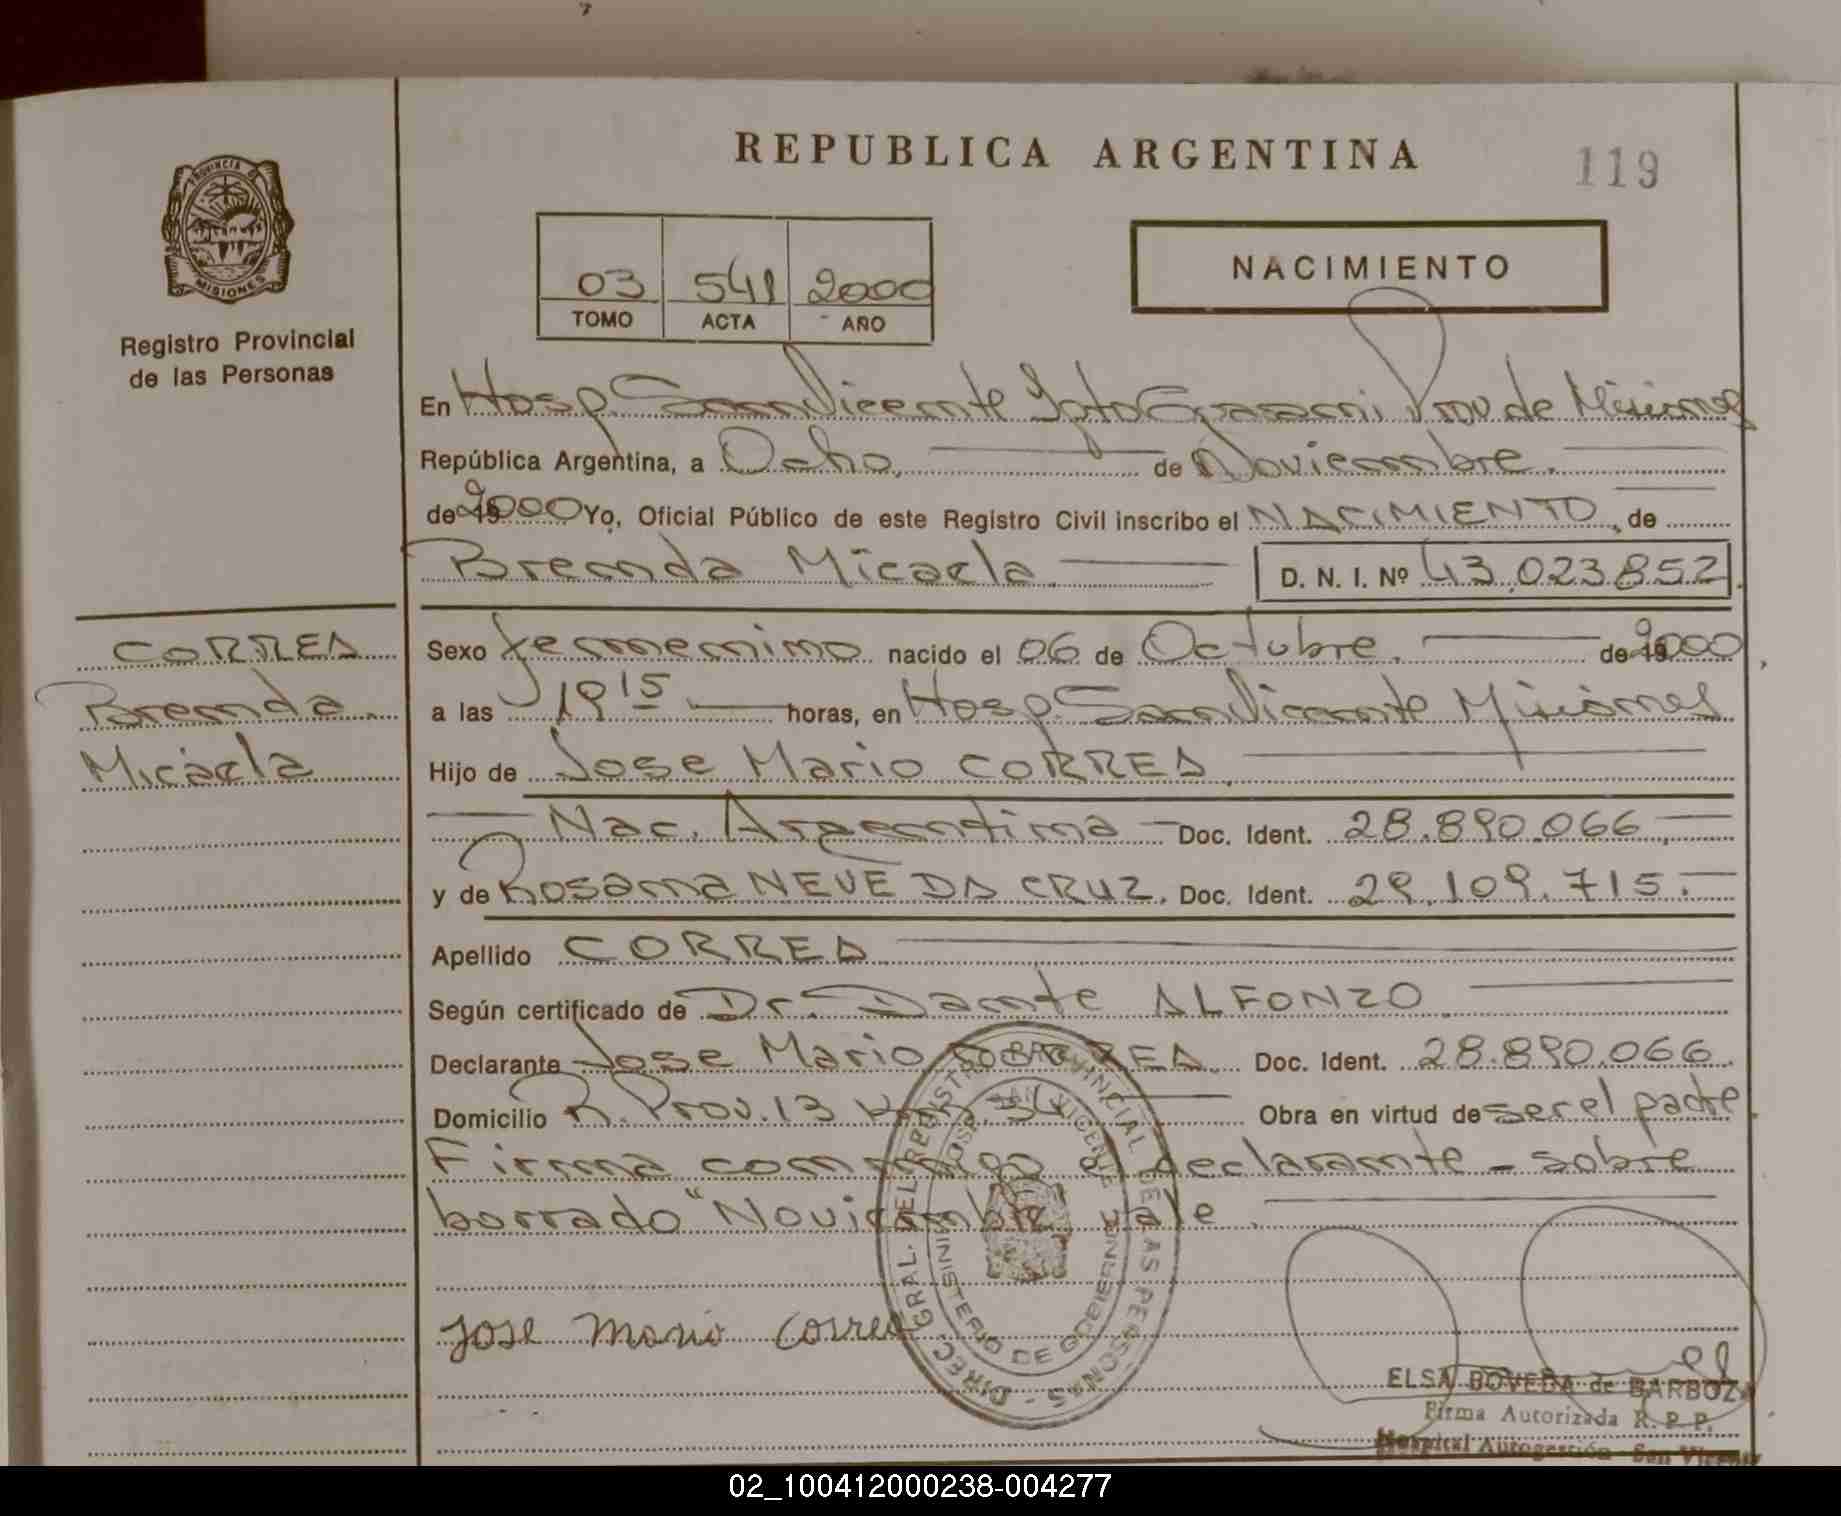 REPUBLICA ARGENTINA
119
PROVINCIA DE
MISIONES
Registro Provincial
de las Personas
03 541 2000
TOMO ACTA AÑO
NACIMIENTO
En Hosp. San Vicente Prov de Misiones
República Argentina, a Ocho de Noviembre.
de 2000 Yo, Oficial Público de este Registro Civil inscribo el NACIMIENTO, de
Brenda Micaela. D. N. I. Nº 43.023852.
CORREA
Brenda
Micaela
Sexo femenino nacido el 06 de Octubre. de 2000
a las 19 15 horas, en Hosp. San Vicente Misiones
Hijo de Jose Mario CORREA
Nac. Argentina Doc. Ident. 28.890.066
y de Rosana NEVE DA CRUZ. Doc. Ident. 29.109.715.
Apellido CORREA
Según certificado de Dr. Dante ALFONZO
Declarante Jose Mario CORREA. Doc. Ident. 28.890.066.
Domicilio R. Prov. 13 Km. 34 Obra en virtud de ser el padre.
Firma conmigo el declarante - sobre
borrado "Noviembre vale.
Jose Mario Correa
DIREC. GRAL. DEL REGISTRO PROVINCIAL DE LAS PERSONAS -
HOSP. SAN VICENTE
MINISTERIO DE GOBIERNO
ELSA BOVEDA de BARBOZA
Firma Autorizada R. P. P.
Hospital Autogestión San Vicente
02_100412000238-004277